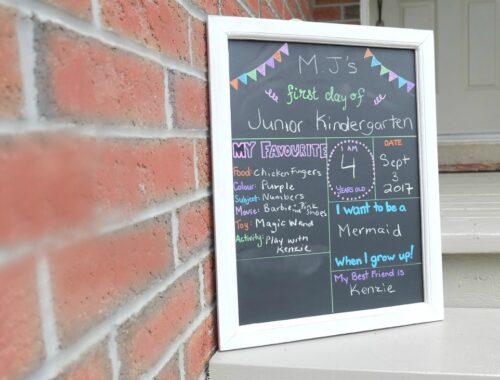 M.J's
first day of
Junior Kindergarten
MY FAVOURITE
Food: Chicken Fingers
Colour: Purple
Subject: Numbers
Movie: Barbie - and the Pink Shoes
Toy: Magic Wand
Activity: Play with
Kenzie
I AM
4
YEARS OLD
DATE
Sept
3
2017
I want to be a
Mermaid
When I grow up!
My Best Friend is
Kenzie